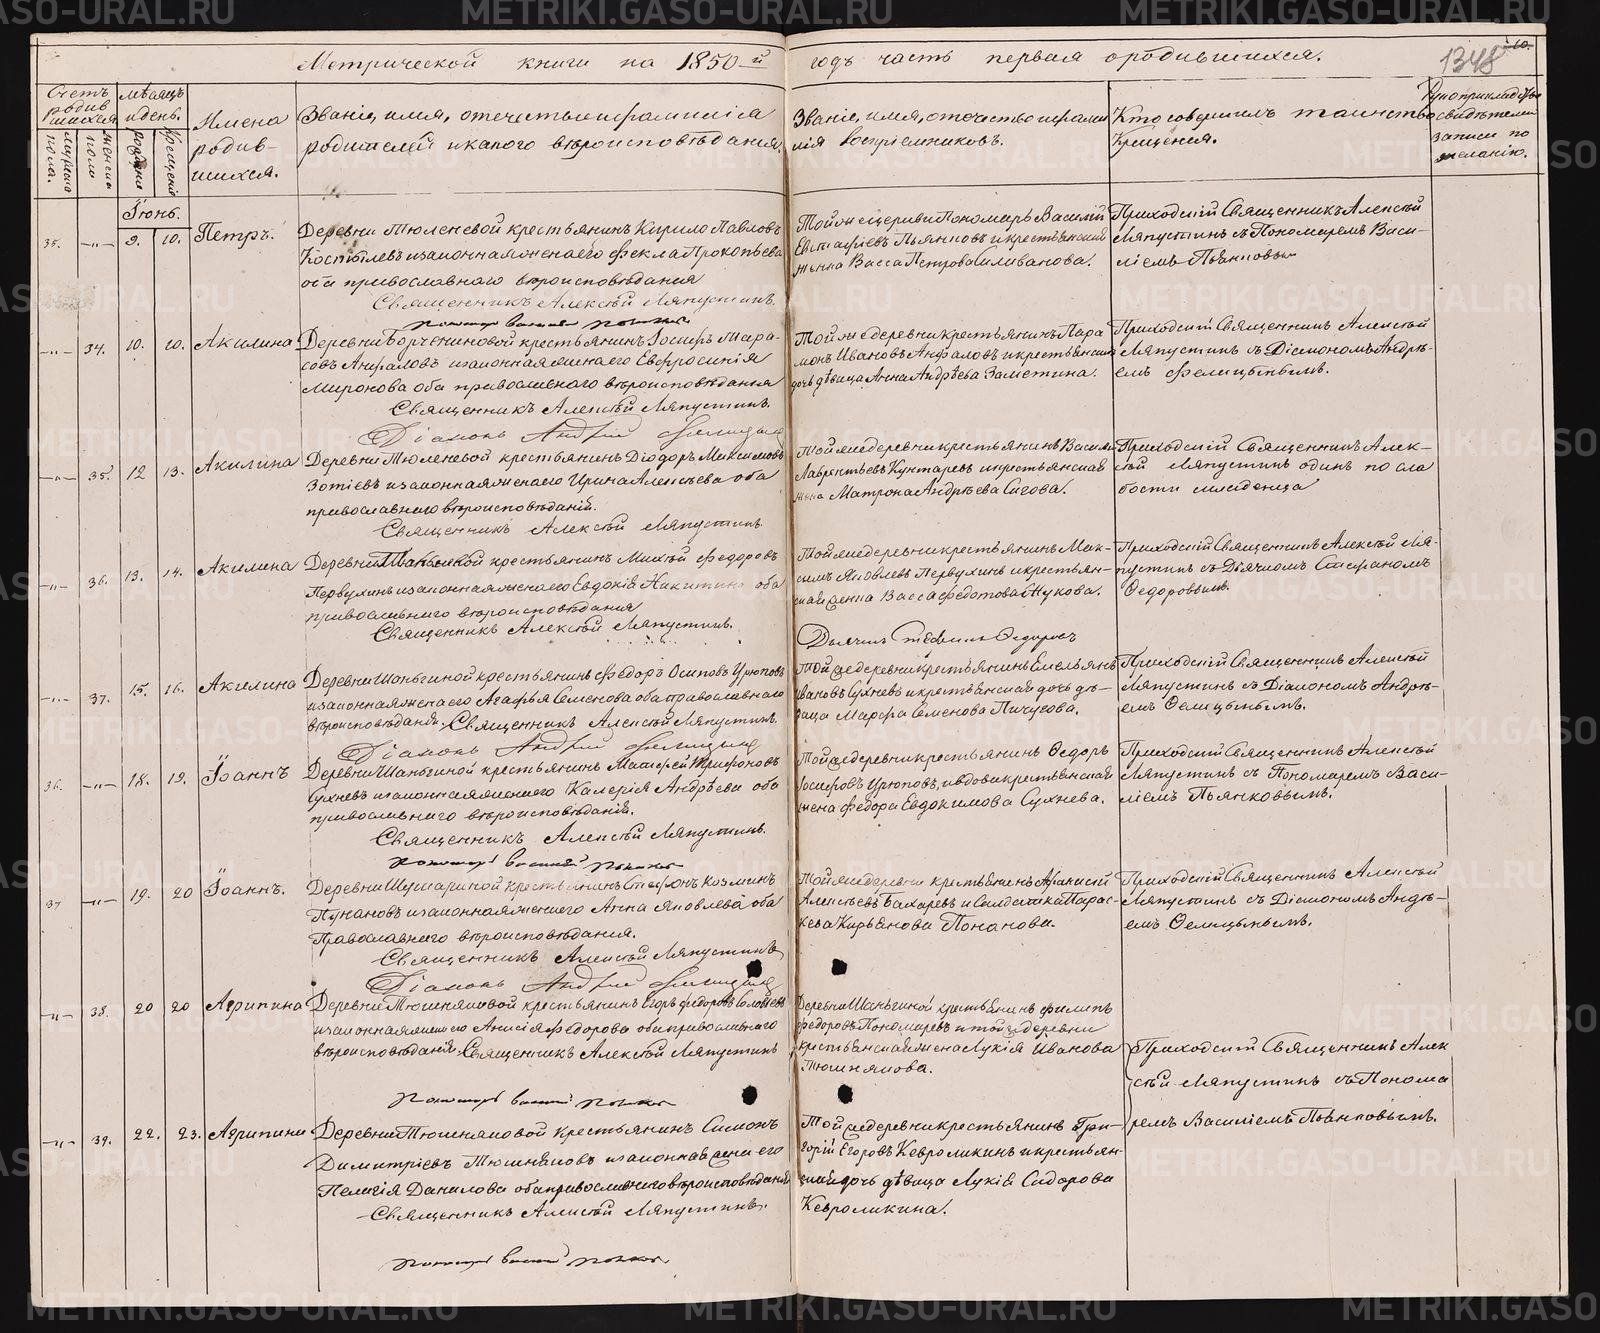 Метрической книги на 1850-й годъ часть первая о родившихся.
1348
Счетъ родив шихся
мѣсяцъ и день.
Имена родив- шихся.
Званіе, имя, отечество и фамилія
родителей и какого вѣроисповѣданія.
Званіе, имя, отечество и фами
лія воспріемниковъ.
Кто совершилъ таинство
Крещенія.
Рукоприкладство
свидѣтелей
записи по
желанію.
мужеска пола.
женска пола
рожденія
крещенія
Іюнь.
35. -„- 9. 10. Петръ.
Деревни Тюленевой крестьянинъ Кирило Павловъ
Костылевъ и законная жена его Фекла Прокопьева
оба православнаго вѣроисповѣданія
Священникъ Алексѣй Ляпустинъ.
Пономарь Василій Пьянковъ
Той же церкви Пономарь Василій
Евстафіевъ Пьянковъ и крестьянская
женка Васса Петрова Селиванова.
Приходскій Священникъ Алексѣй
Ляпустинъ съ Пономаремъ Васи-
ліемъ Пьянковымъ
-„- 34. 10. 10. Акилина
крестьянинъ Іосифъ Тара-
совъ Анфаловъ и законная жена его Евфросинія
Миронова оба православнаго вѣроисповѣданія
Священникъ Алексѣй Ляпустинъ.
Діаконъ Андрей Фелицынъ
Той же деревни крестьянинъ Пара
монъ Ивановъ Анфаловъ и крестьянская
дочь дѣвица Анна Андрѣева Замѣтина.
Приходскій Священникъ Алексѣй
Ляпустинъ съ Діакономъ Андрѣ-
емъ Фелицынымъ.
-„- 35. 12 13. Акилина
Деревни Тюленевой крестьянинъ Діодоръ Максимовъ
Зотіевъ и законная жена его Ирина Алексѣева оба
православнаго вѣроисповѣданій.
Священникъ Алексѣй Ляпустинъ
Той же деревни крестьянинъ Василій
Лаврентьевъ Кунгаревъ и крестьянская
женка Матрона Андрѣева Сигова.
Приходскій Священникъ Алек-
сѣй Ляпустинъ одинъ по сла
бости младенца
-„- 36. 13. 14. Акилина
Деревни крестьянинъ Михѣй Федоровъ
Первухинъ и законная жена его Евдокія Никитина оба
православнаго вѣроисповѣданія
Священникъ Алексѣй Ляпустинъ.
Той же деревни крестьянинъ Мак-
симъ Яковлевъ Первухинъ и крестьян-
ская женка Васса Федотова Жукова.
Дьячекъ Стефанъ Федоровъ
Приходскій Священникъ Алексѣй Ля-
пустинъ съ Дьячкомъ Стефаномъ
Федоровымъ.
-„- 37. 15. 16. Акилина
Деревни Шаньгиной крестьянинъ Федоръ Осиповъ Урюповъ
и законная жена его Агафья Семенова оба православнаго
вѣроисповѣданія. Священникъ Алексѣй Ляпустинъ.
Діаконъ Андрей Фелицынъ
Той же деревни крестьянинъ Емельянъ
Ивановъ Сухневъ и крестьянская дочь дѣ-
вица Марфа Семенова Пичугова.
Приходскій Священникъ Алексѣй
Ляпустинъ съ Діакономъ Андрѣ-
емъ Фелицынымъ.
36. -„- 18. 19. Іоаннъ
Деревни Шаньгиной крестьянинъ Матфей Трифоновъ
Сухневъ и законная жена его Калерія Андрѣева оба
православнаго вѣроисповѣданія.
Священникъ Алексѣй Ляпустинъ.
Пономарь Василій Пьянковъ
Той же деревни крестьянинъ Федоръ
Іосифовъ Урюповъ, и вдова крестьянская
жена Федора Евдокимова Сухнева.
Приходскій Священникъ Алексѣй
Ляпустинъ съ Пономаремъ Васи-
ліемъ Пьянковымъ.
37 -„- 19. 20 Іоаннъ.
крестьянинъ Стефанъ Козминъ
и законная жена его Анна Яковлева оба
Православнаго вѣроисповѣданія.
Священникъ Алексѣй Ляпустинъ
Діаконъ Андрей Фелицынъ
Той же деревни крестьянинъ Афанасій
Алексѣевъ Бахаревъ и Солдатка Парас-
кева Кирьянова Попанова.
Приходскій Священникъ Алексѣй
Ляпустинъ съ Діакономъ Андрѣ-
емъ Фелицынымъ.
-„- 38. 20 20 Агрипина
Деревни Тюшняковой крестьянинъ Егоръ Федоровъ
и законная жена его Анисія Федорова оба православнаго
вѣроисповѣданія Священникъ Алексѣй Ляпустинъ
Пономарь Василій Пьянковъ
Деревни Шаньгиной крестьянинъ Филипъ
Федоровъ Пономаревъ и той же деревни
крестьянская жена Лукія Иванова
Тюшнякова.
Приходскій Священникъ Алек
сѣй Ляпустинъ съ Понома
ремъ Василіемъ Пьянковымъ.
-„- 39. 22. 23. Агрипина
Деревни Тюшняковой крестьянинъ Симонъ
Димитріевъ Тюшняковъ и законная жена его
Пелагія Данилова оба православнаго вѣроисповѣданія
Священникъ Алексѣй Ляпустинъ.
Пономарь Василій Пьянковъ
Той же деревни крестьянинъ Гри-
горій Егоровъ Кевроликинъ и крестьян-
ская дочь дѣвица Лукія Сидорова
Кевроликина.